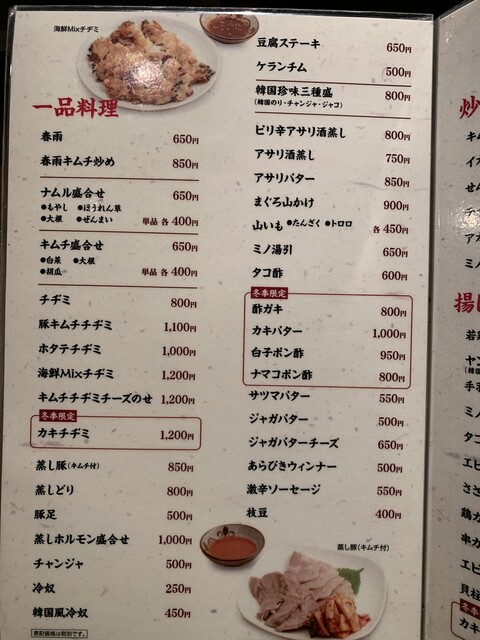 海鮮Mixチヂミ
一品料理
春雨 650円
春雨キムチ炒め 850円
ナムル盛合せ 650円
●もやし ●ほうれん草
●大根 ●ぜんまい 単品 各 400円
キムチ盛合せ 650円
●白菜 ●大根
●胡瓜 単品 各 400円
チヂミ 800円
豚キムチチヂミ 1,100円
ホタテチヂミ 1,000円
海鮮Mixチヂミ 1,200円
キムチチヂミチーズのせ 1,200円
冬季限定
カキチヂミ 1,200円
蒸し豚(キムチ付) 850円
蒸しどり 800円
豚足 500円
蒸しホルモン盛合せ 1,000円
チャンジャ 500円
冷奴 250円
韓国風冷奴 450円
表記価格は税別です。
豆腐ステーキ 650円
ケランチム 500円
韓国珍味三種盛 800円
(韓国のり・チャンジャ・ジャコ)
ピリ辛アサリ酒蒸し 800円
アサリ酒蒸し 750円
アサリバター 850円
まぐろ山かけ 900円
山いも ●たんざく ●トロロ 各 450円
ミノ湯引 650円
タコ酢 600円
冬季限定
酢ガキ 800円
カキバター 1,000円
白子ポン酢 950円
ナマコポン酢 800円
サツマバター 550円
ジャガバター 500円
ジャガバターチーズ 650円
あらびきウィンナー 500円
激辛ソーセージ 550円
枝豆 400円
蒸し豚(キムチ付)